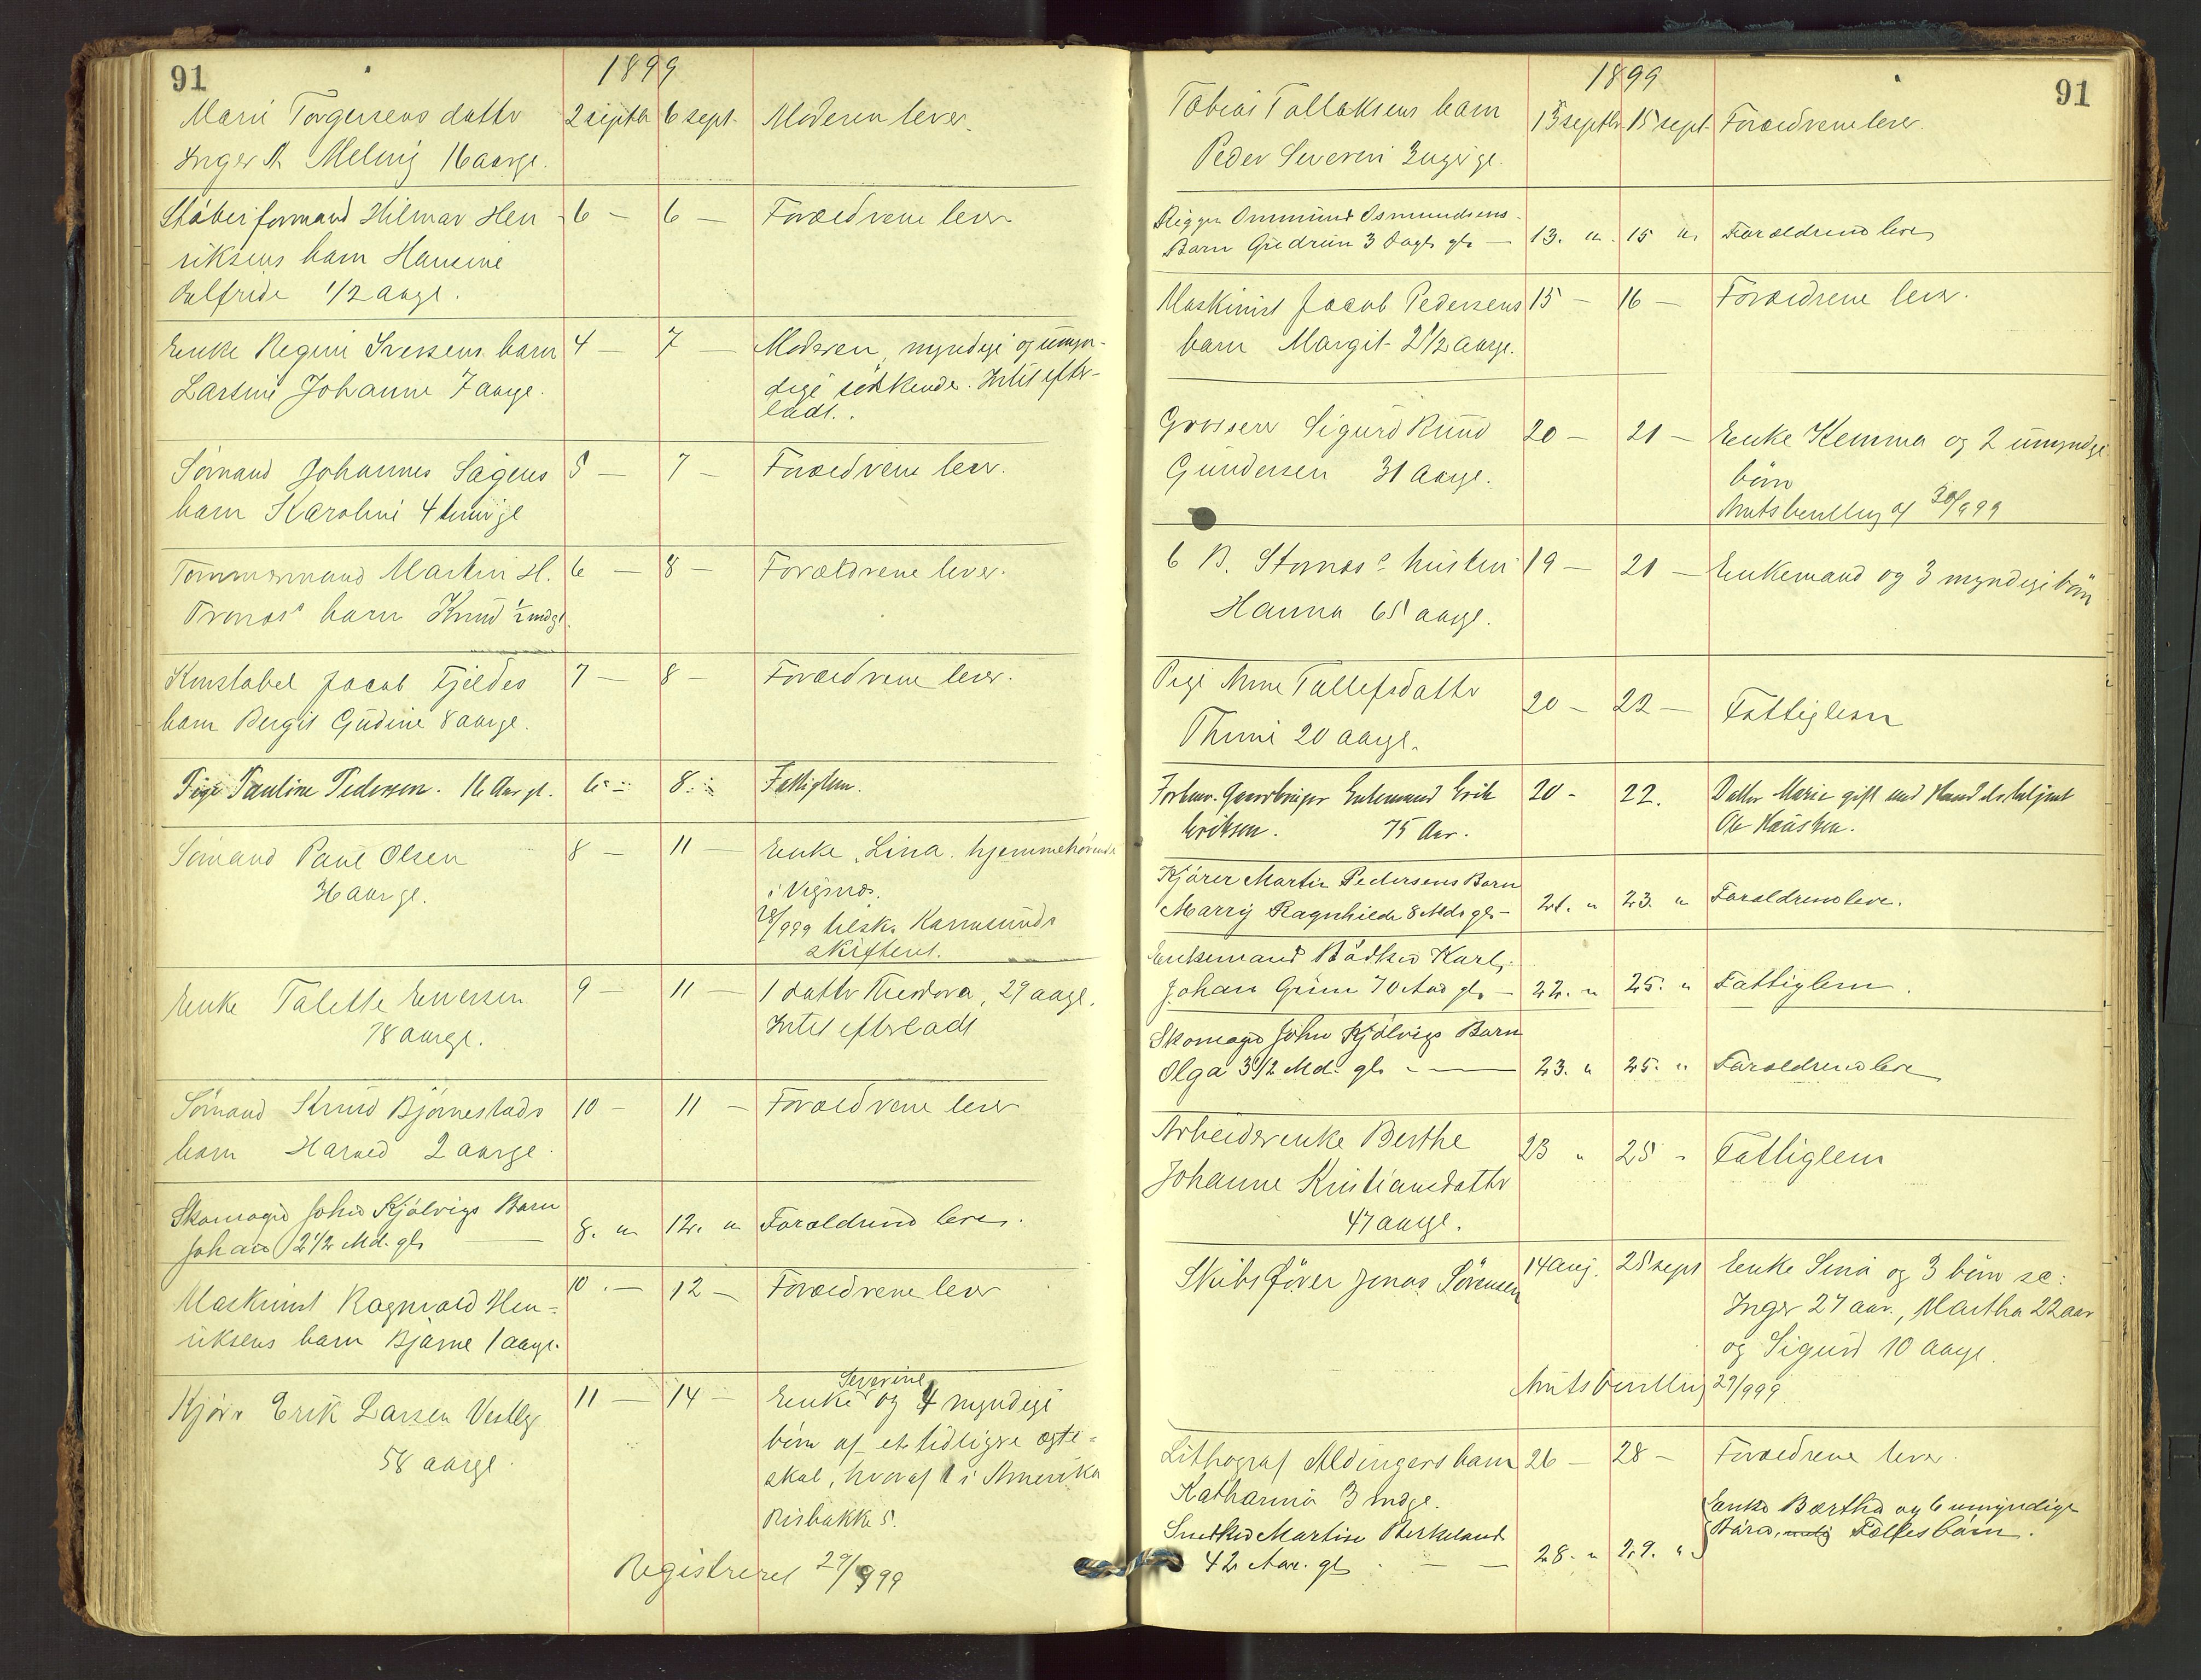 91
1899
Marie Torgersens datter 2 septbr 6 sept. Moderen lever.
Inger A Meling 16 aargl.
Støberiformand Hilmar Hen- 6 — 6 — Forældrene lever
riksens barn Hansine
Valfride 1/2 aargl.
Enke Regine Iversens barn 4 — 7 — Moderen, myndige og umyn-
Lartine Johanne 7 aargl. dige søskende. Intet efter-
ladt.
Sømand Johannes Sagens 5 — 7 — Forældrene lever.
barn Karoline 4 uger gl
Tømmermand Martin H. 6 — 8 — Forældrene lever.
Tronæs's barn Knud 1/2 mdgl.
Konstabel Jacob Fjeldes 7 — 8 — Forældrene lever.
barn Bergit Gudine 8 aargl.
Pige Pauline Pedersen. 16 Aar gl. 6 — 8 Fattiglem.
Sømand Paul Olsen 8 — 11 — Enke Lina. hjemmehørende
36 aargl. i Vigsnæs.
28/9 99 tilsk. Karmsunds
skifteret.
Enke Talette Enersen 9 — 11 — 1 datter Theodora, 29 aargl.
78 aargl. Intet efterladt
Sømand Knud Bjørnestads 10 — 11 — Forældrene lever
barn Harald 2 aargl.
Skomager John Kjølvigs Barn
Johan 2 1/2 Md. gl. — 8. " 12. " Forældrene lever.
Maskinist Ragnvald Hen- 10 — 12 — Forældrene lever
riksens barn Bjarne 1 aargl.
Severine
Kjører Erik Larsen Vestly 11 — 14 — Enke og 4 myndige
58 aargl. børn af et tidligere ægte-
skab, hvoraf 1 i Amerika
Risbakke 5.
Registreret 29/9 99
1899
91
Tobias Tallaksens barn 13 septbr 15 sept. Forældrene lever.
Peder Severin 3 uger gl.
Rigger Ommund Osmundsens
Barn Gudrun 3 Dage gl. — 13. " 15 " Forældrene lever
Maskinist Jacob Pedersens 15 — 16 — Forældrene lever.
barn Margit 2 1/2 aargl.
Grosserer Sigurd Knud 20 — 21 — Enke Kemma og 2 umyndige
Gundersen 31 aargl. børn
Amtsbevilling af 30/9 99
B. Stornæs's hustru 19 — 21 — Enkemand og 3 myndige børn
Hanna 65 aargl.
Pige Anne Tallefsdatter 20 — 22 — Fattiglem
Thime 20 aargl.
Forhenv. Gaardbruger Enkemand Erik 20 - 22. Datter Marie gift med Handelsbetjent
Eriksen. 75 Aar. Ole Hausken.
Kjører Martin Pedersens Barn
Marry Ragnhilde 8 Mdr gl. — 21. " 23. " Forældrene lever.
Enkemand Bødker Karl
Johan Grim 70 Aar gl. — 22. " 25. " Fattiglem.
Skomager John Kjølvigs Barn
Olga 3 1/2 Md. gl. — 23. " 25. " Forældrene lever
Arbeiderenke Berthe 23 " 25 " Fattiglem
Johanne Kristiansdatter
47 aargl.
Skibsfører Jonas Sørensen 14 aug. 25 sept Enke Sina og 3 børn sc:
Inger 27 aar., Martha 22 aar
og Sigurd 10 aargl.
Amtsbevilling 29/9 99
Lithograf Aldingers barn 26 — 28 — Forældrene lever.
Katharina 3 mdgl.
Snedker Martin Berkeland Enke Bertha og 6 umyndige
42 Aar. gl. — 28. " 29. " Børn, Fællesbørn.